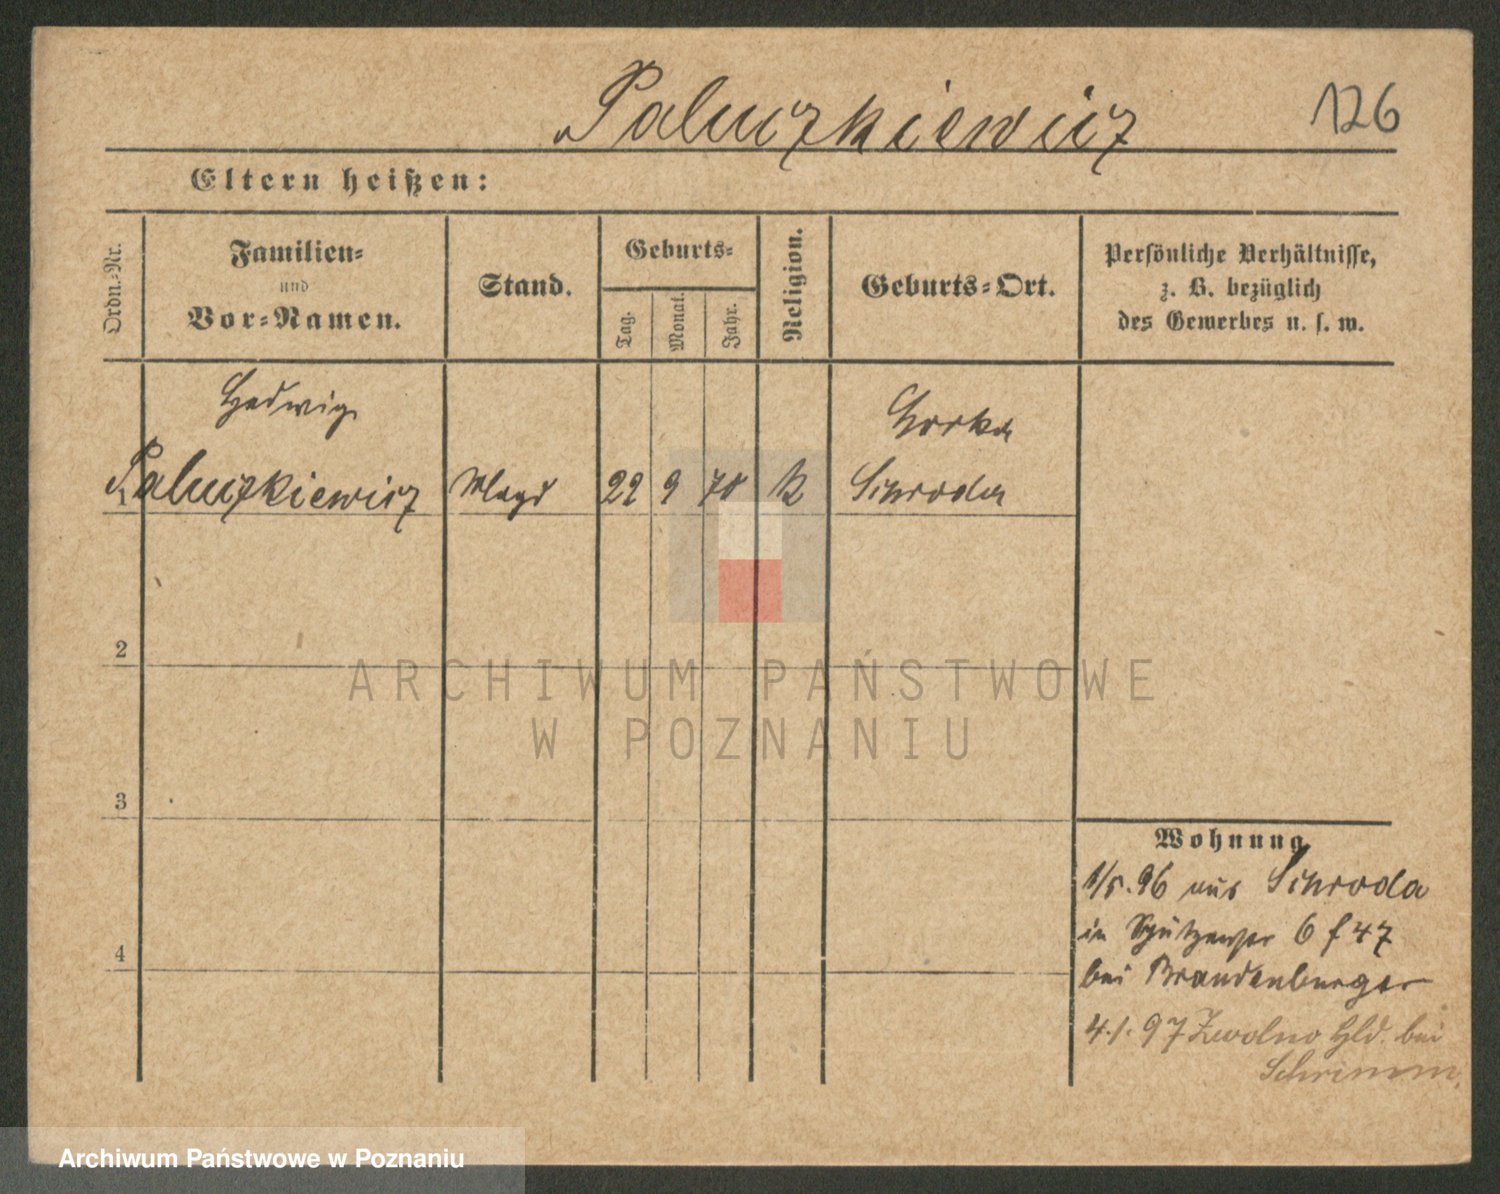 Paluczkiewicz
126
Eltern heißen:
Ordn.-Nr.
Familien-
und
Vor-Namen.
Stand.
Geburts-
Tag.
Monat.
Jahr.
Religion.
Geburts-Ort.
Persönliche Verhältnisse,
z. B. bezüglich
des Gewerbes u. s. w.
Hedwig
Gorka
1 Paluczkiewicz Magd 22 9 70 k Schroda
2
3
4
Wohnung
1/5.96 aus Schroda
in 6 f 47
bei Brandenburger
4.1.97 Zwolno Hld. bei
Schrimm.
ARCHIWUM PAŃSTWOWE
W POZNANIU
Archiwum Państwowe w Poznaniu